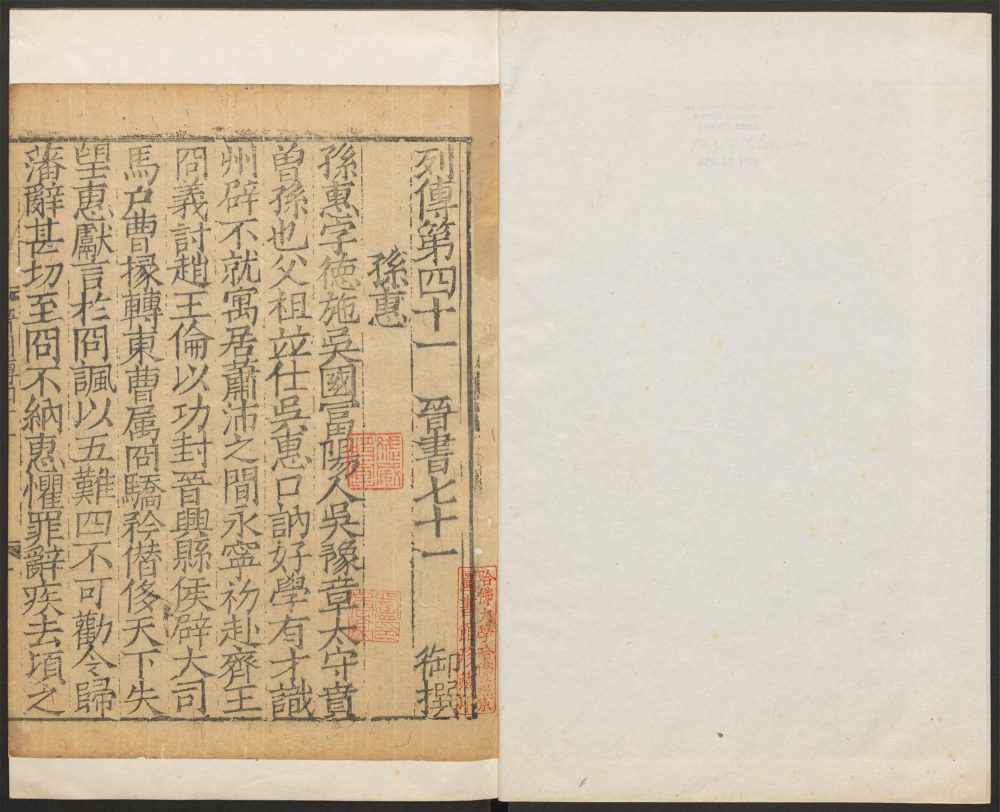 列傳第四十一 晉書七十一 御撰
孫惠
孫惠字德施吳國富陽人吳豫章太守賁
曾孫也父祖竝仕吳惠口訥好學有才識
州辟不就寓居蕭沛之間永寧初赴齊王
冏義討趙王倫以功封晉興縣侯辟大司
馬戶曹掾轉東曹属冏驕矜僣侈天下失
望惠獻言於冏諷以五難四不可勸令歸
藩辭甚切至冏不納惠懼罪辭疾去頃之
哈佛大學哈佛燕京
圖書館珍藏印
APR 1970